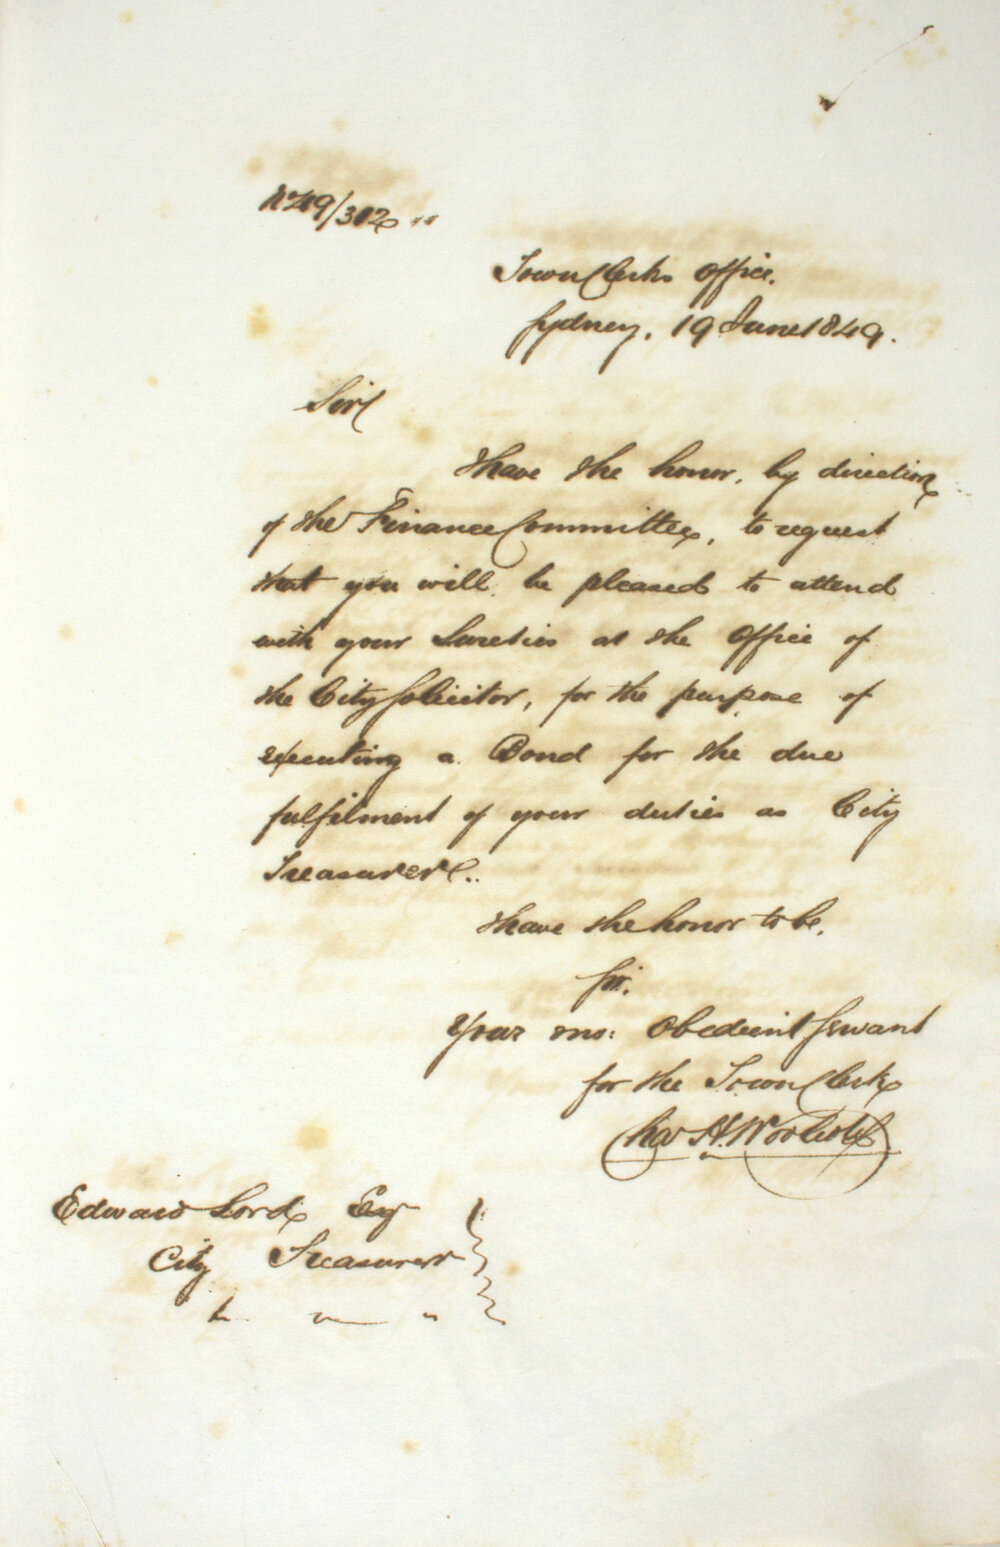 No 49/312
Town Clerks Office.
Sydney, 19 June 1849.
Sir
I have the honor, by direction
of the Finance Committee, to request
that you will be pleased to attend
with your Sureties at the Office of
the City Solicitor, for the purpose of
executing a Bond for the due
fulfilment of your duties as City
Treasurer.
I have the honor to be,
Sir,
Your mo: Obedient Servant
for the Town Clerk
Chas H. Woolcott
Edward Lord Esq
City Treasurer